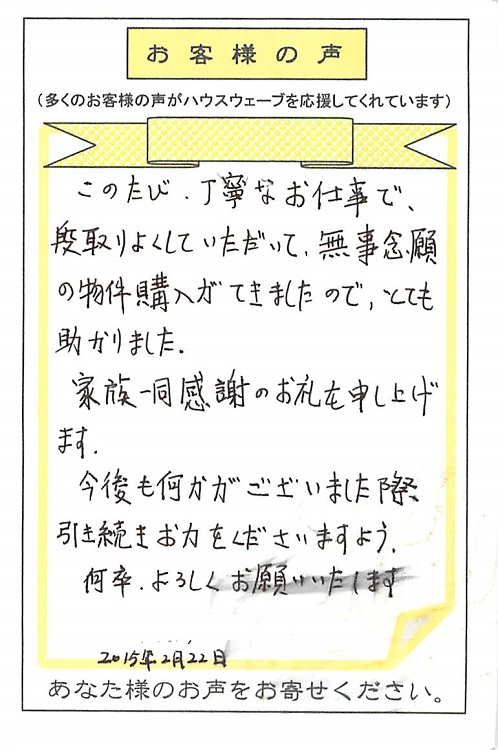 お客様の声
（多くのお客様の声がハウスウェーブを応援してくれています）
このたび、丁寧なお仕事で、
段取りよくしていただいて、無事念願
の物件購入ができましたので、とても
助かりました.
家族一同感謝のお礼を申し上げ
ます.
今後も何かがございました際、
引き続きお力をくださいますよう、
何卒、よろしくお願いいたします
2015年2月22日
あなた様のお声をお寄せください。